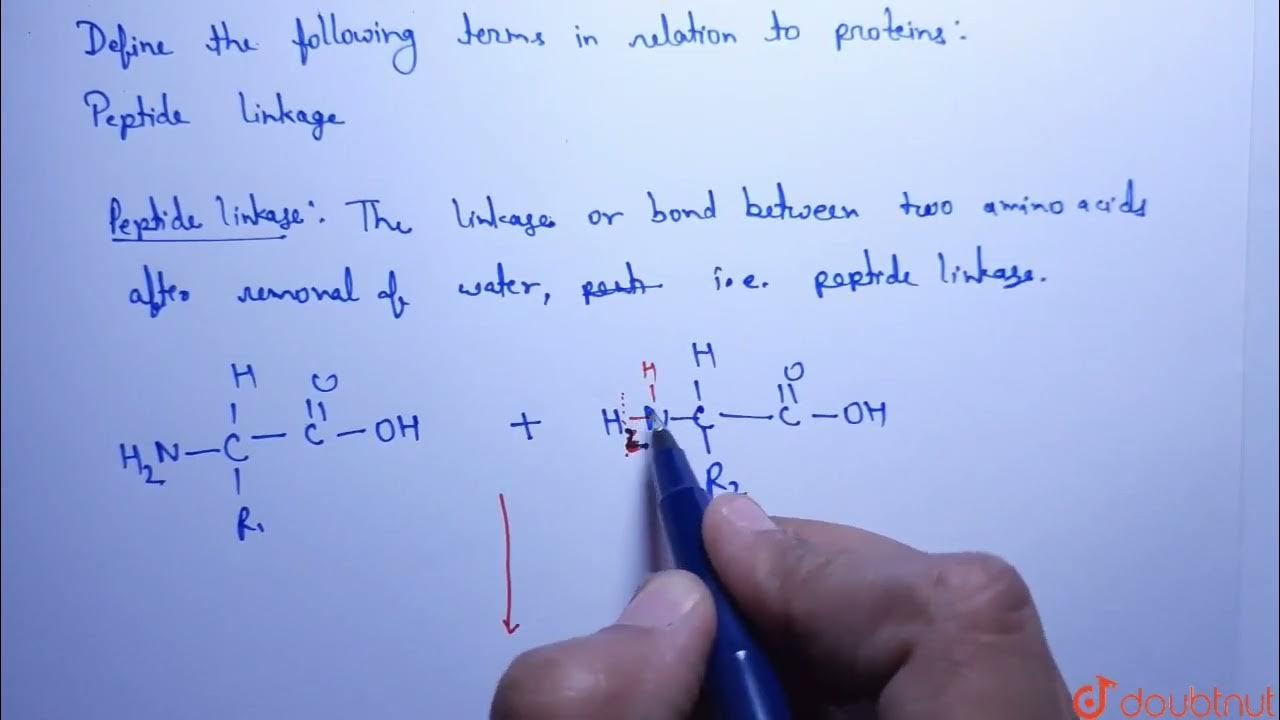 Define the following terms in relation to proteins:
Peptide linkage
Peptide linkage: The linkage or bond between two amino acids
after removal of water, i.e. peptide linkage.
H H
H O H O
H₂N C C OH + H N C C OH
R₁ R₂
doubtnut